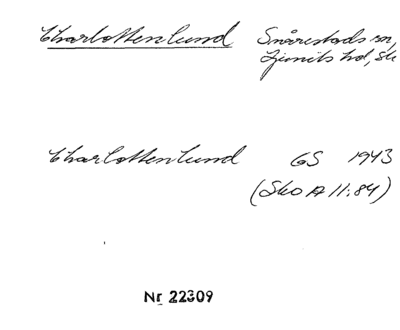 Charlottenlund Snårestads sn,
Ljunits hd, Sk
Charlottenlund GS 1943
(Sko A 11:84)
Nr 22309